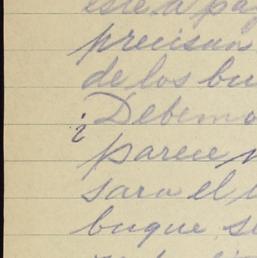 este a pag
precisan
de los bu
¿Debemo
parece
sara el
buque s